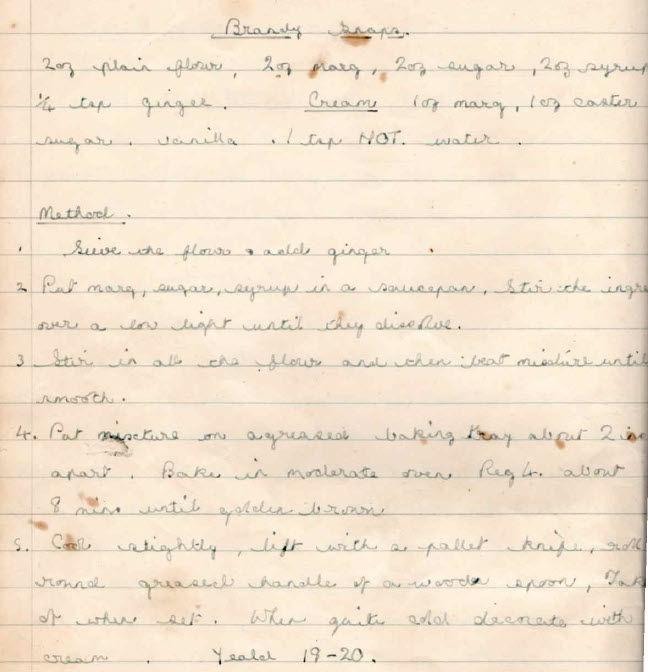 Brandy Snaps.
2oz plain flour, 2oz marg, 2oz sugar, 2oz syrup
¼ tsp ginger. Cream 1oz marg, 1oz caster
sugar. vanilla. 1 tsp HOT. water.
Method.
1 Sieve the flour & add ginger.
2 Put marg, sugar, syrup in a saucepan, Stir the ingre
over a low light until they disolve.
3 Stir in all the flour and then beat mixture until
smooth.
4. Put mixture on a greased baking tray about 2 in
apart. Bake in moderate oven Reg 4. about
8 mins until golden brown
5. Cool slightly, lift with a pallet knife, roll
round greased handle of a wooden spoon, Tak
of when set. When quite cold decorate with
cream. Yeald 19-20.